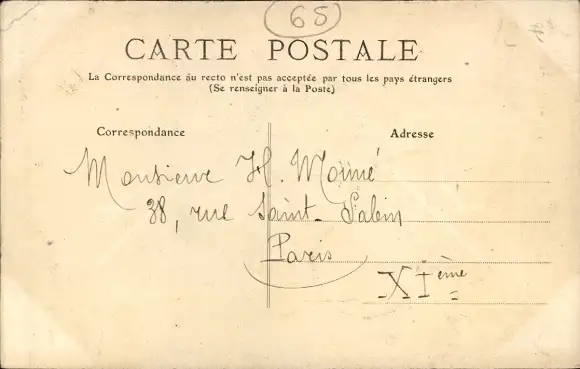 65
CARTE POSTALE
La Correspondance au recto n'est pas acceptée par tous les pays étrangers
(Se renseigner à la Poste)
Correspondance
Adresse
Monsieur H. Moimé
38, rue Saint-Sabin
Paris
XIème